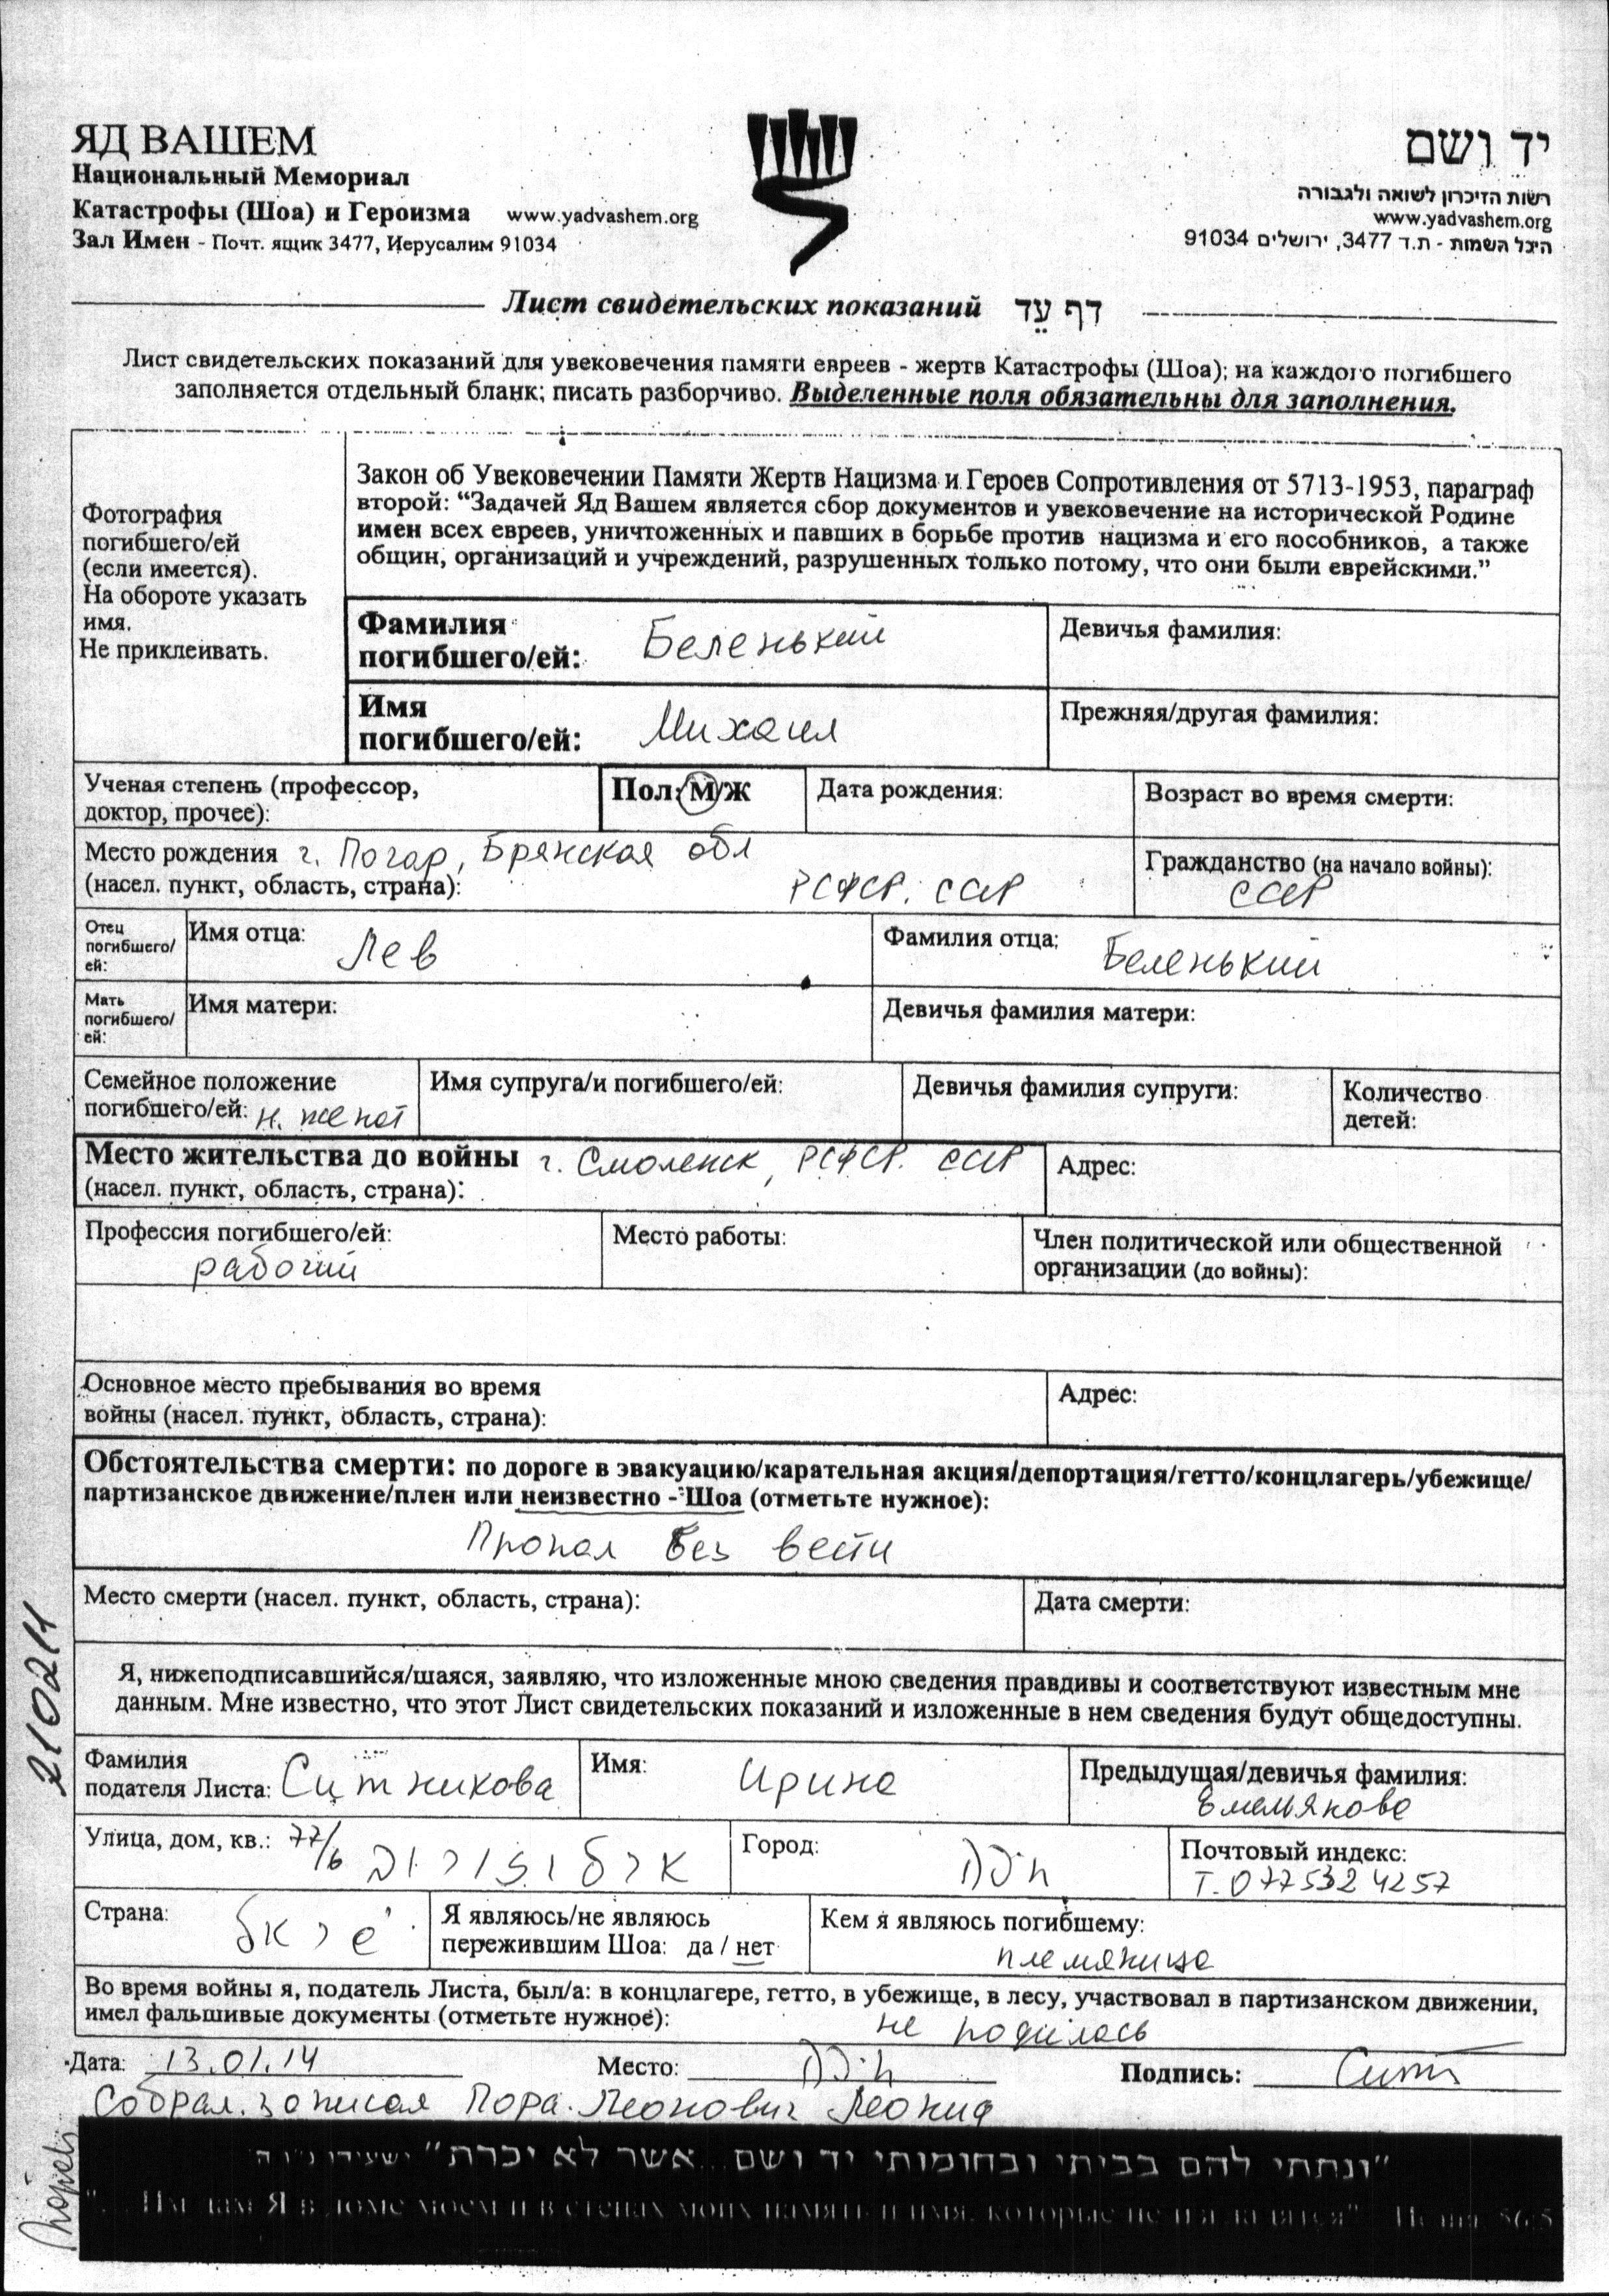 ЯД ВАШЕМ
Национальный Мемориал
Катастрофы (Шоа) и Героизма www.yadvashem.org
Зал Имен - Почт. ящик 3477, Иерусалим 91034
יד ושם
רשות הזיכרון לשואה ולגבורה
www.yadvashem.org
היכל השמות - ת.ד 3477, ירושלים 91034
Лист свидетельских показаний דף עֵד
Лист свидетельских показаний для увековечения памяти евреев - жертв Катастрофы (Шоа); на каждого погибшего
заполняется отдельный бланк; писать разборчиво. Выделенные поля обязательны для заполнения.
Фотография
погибшего/ей
(если имеется).
На обороте указать
имя.
Не приклеивать.
Закон об Увековечении Памяти Жертв Нацизма и Героев Сопротивления от 5713-1953, параграф
второй: “Задачей Яд Вашем является сбор документов и увековечение на исторической Родине
имен всех евреев, уничтоженных и павших в борьбе против нацизма и его пособников, а также
общин, организаций и учреждений, разрушенных только потому, что они были еврейскими.”
Фамилия
погибшего/ей: Беленький
Девичья фамилия:
Имя
погибшего/ей: Михаил
Прежняя/другая фамилия:
Ученая степень (профессор,
доктор, прочее):
Пол: М/Ж
Дата рождения:
Возраст во время смерти:
Место рождения г. Погар, Брянская обл
(насел. пункт, область, страна): РСФСР. СССР
Гражданство (на начало войны):
СССР
Отец
погибшего/
ей:
Имя отца: Лев
Фамилия отца: Беленький
Мать
погибшего/
ей:
Имя матери:
Девичья фамилия матери:
Семейное положение
погибшего/ей: н. женат
Имя супруга/и погибшего/ей:
Девичья фамилия супруги:
Количество
детей:
Место жительства до войны г. Смоленск, РСФСР. СССР
(насел. пункт, область, страна):
Адрес:
Профессия погибшего/ей:
рабочий
Место работы:
Член политической или общественной
организации (до войны):
Основное место пребывания во время
войны (насел. пункт, область, страна):
Адрес:
Обстоятельства смерти: по дороге в эвакуацию/карательная акция/депортация/гетто/концлагерь/убежище/
партизанское движение/плен или неизвестно - Шоа (отметьте нужное):
Пропал без вести
Место смерти (насел. пункт, область, страна):
Дата смерти:
Я, нижеподписавшийся/шаяся, заявляю, что изложенные мною сведения правдивы и соответствуют известным мне
данным. Мне известно, что этот Лист свидетельских показаний и изложенные в нем сведения будут общедоступны.
Фамилия
подателя Листа: Ситникова
Имя: Ирина
Предыдущая/девичья фамилия:
Емельянова
Улица, дом, кв.: 77/6
Город:
Почтовый индекс:
Т. 0775324257
Страна:
Я являюсь/не являюсь
пережившим Шоа: да / нет
Кем я являюсь погибшему:
племяница
Во время войны я, податель Листа, был/а: в концлагере, гетто, в убежище, в лесу, участвовал в партизанском движении,
имел фальшивые документы (отметьте нужное): не родилась
Дата: 13.01.14 Место: Подпись: Ситн
Собрал. записал Пора. Леонович Леонид
210211
"ונתתי להם בביתי ובחומותי יד ושם...אשר לא יכרת" ישעיהו נ"ו ה